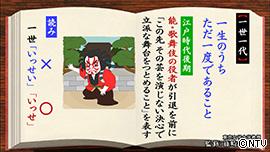 【一世一代】
一生のうち
ただ一度であること
江戸時代後期
能・歌舞伎の役者が引退を前に
「この先 その芸を演じない決心で
立派な舞台をつとめること」を表す
読み
× ○
一世「いっせい」「いっせ」
©NTV